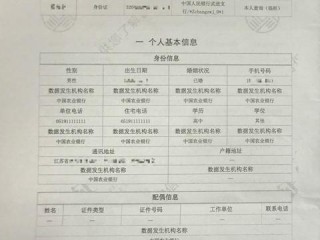 身份证
中国人民银行
一 个人基本信息
身份信息
性别 出生日期 婚姻状况 手机号码
男性 已婚
数据发生机构名称 数据发生机构名称 数据发生机构名称 数据发生机构名称
中国农业银行 中国农业银行 中国农业银行 中国农业银行
单位电话 住宅电话 学历 学位
高中 其他
数据发生机构名称 数据发生机构名称 数据发生机构名称 数据发生机构名称
中国农业银行 中国农业银行 中国农业银行 中国农业银行
通讯地址 户籍地址
江苏省 —
数据发生机构名称 数据发生机构名称
中国农业银行 —
配偶信息
姓名 证件类型 证件号码 工作单位 联系电话
— — — — —
数据发生机构名称
—